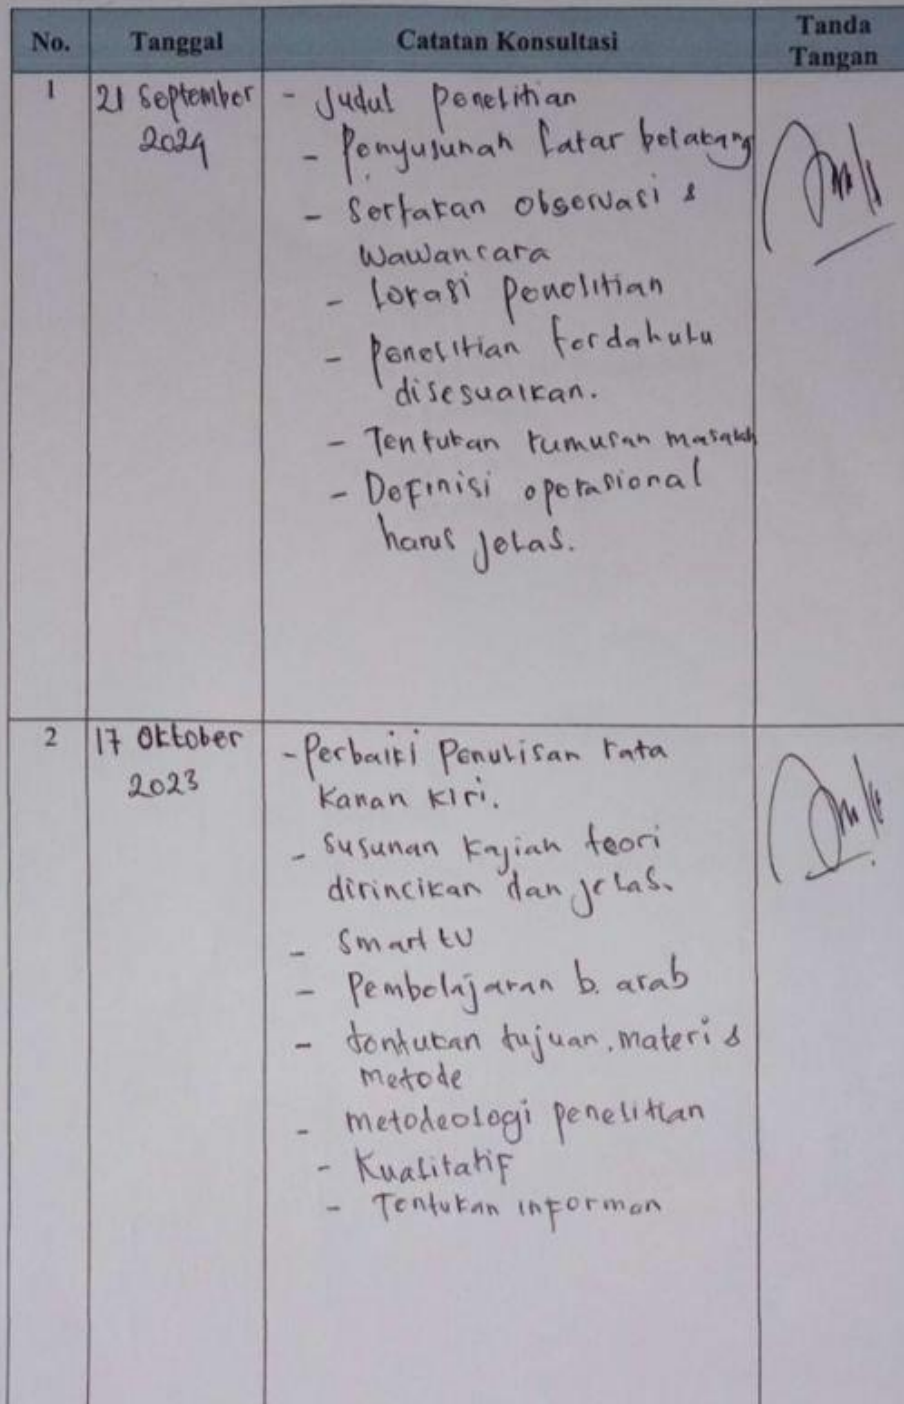 No. Tanggal Catatan Konsultasi Tanda Tangan
1 21 September 2024
- Judul penelitian
- Penyusunan latar belakang
- Sertakan observasi & wawancara
- Lokasi penelitian
- Penelitian terdahulu disesuaikan.
- Tentukan rumusan masalah
- Definisi operasional harus jelas.
2 17 Oktober 2023
- Perbaiki Penulisan rata kanan kiri.
- Susunan kajian teori dirincikan dan jelas.
- Smart tv
- Pembelajaran b. arab
- tentukan tujuan, materi & metode
- metodeologi penelitian
- Kualitatif
- Tentukan informan